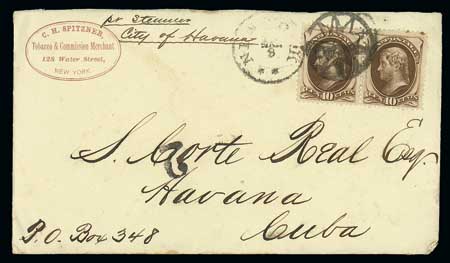 C. H. SPITZNER,
Tobacco & Commission Merchant
128 Water Street,
NEW YORK
pr Steamer
City of Havana
S. Corte Real Esq.
Havana
Cuba
P.O. Box 348
2
10
10